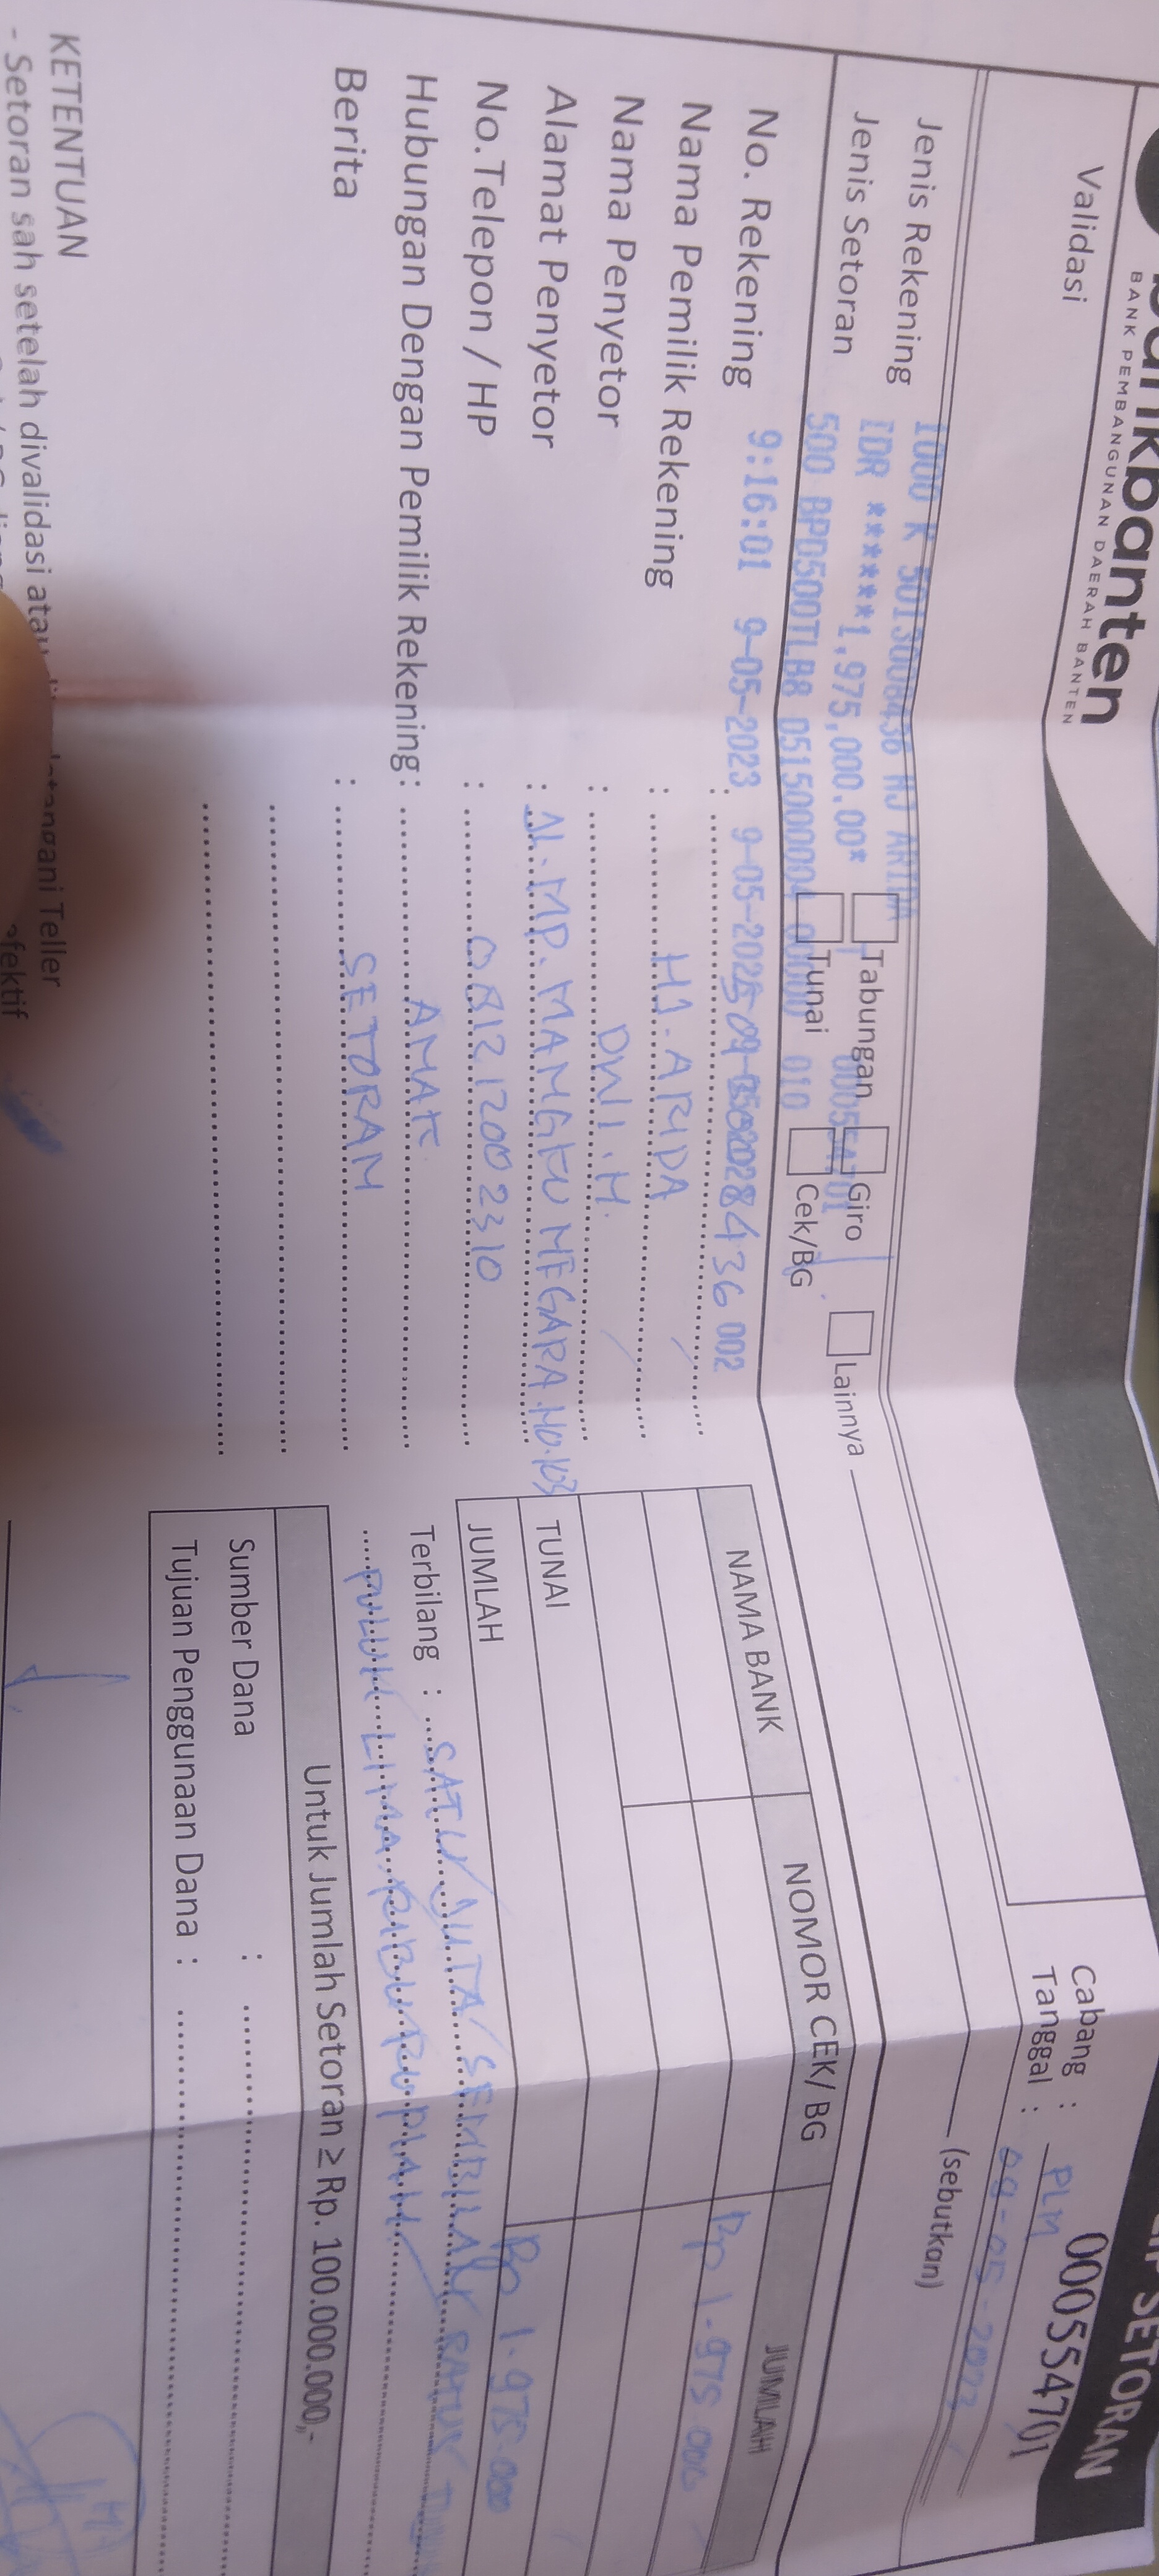 bankbanten
BANK PEMBANGUNAN DAERAH BANTEN
SETORAN
000554701
Validasi
Cabang : PLM
Tanggal : 09-05-2023
1000 K 5013008436 HJ ARIDA
IDR ******1,975,000.00* 000554701
500 BPD500TLB8 0515000004 00000 010
9:16:01 9-05-2023 9-05-2023
002
Jenis Rekening Tabungan Giro Lainnya (sebutkan)
Jenis Setoran Tunai Cek/BG
No. Rekening : 8436
Nama Pemilik Rekening : HJ. ARIDA
Nama Penyetor : DWI. H.
Alamat Penyetor : JL. MP. MANGKU NEGARA NO. 103
No.Telepon / HP : 0812 1200 2310
Hubungan Dengan Pemilik Rekening : ANAK
Berita : SETORAN
NAMA BANK NOMOR CEK/ BG JUMLAH
Rp 1.975.000
TUNAI
JUMLAH Rp 1.975.000
Terbilang : SATU JUTA SEMBILAN RATUS TUJUH
PULUH LIMA RIBU RUPIAH
Untuk Jumlah Setoran ≥ Rp. 100.000.000,-
Sumber Dana :
Tujuan Penggunaan Dana :
KETENTUAN
- Setoran sah setelah divalidasi atau Teller
efektif